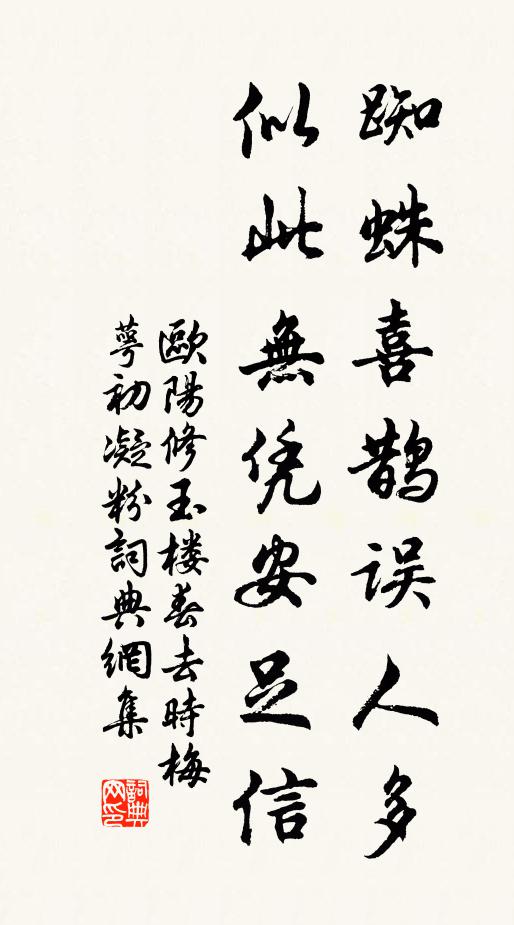 蜘蛛喜鹊误人多
似此無凭安足信
歐陽修玉楼春去時梅
萼初凝粉詞典網集
詞典网印